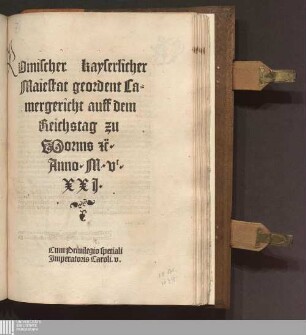 Römischer kayserlicher
Maiestat geordent Ca-
mergericht auff dem
Reichstag zu
Worms ꝛc̈.
Anno. M. vᶜ.
XXI.
Cum Priuilegio speciali
Imperatoris Caroli. v.